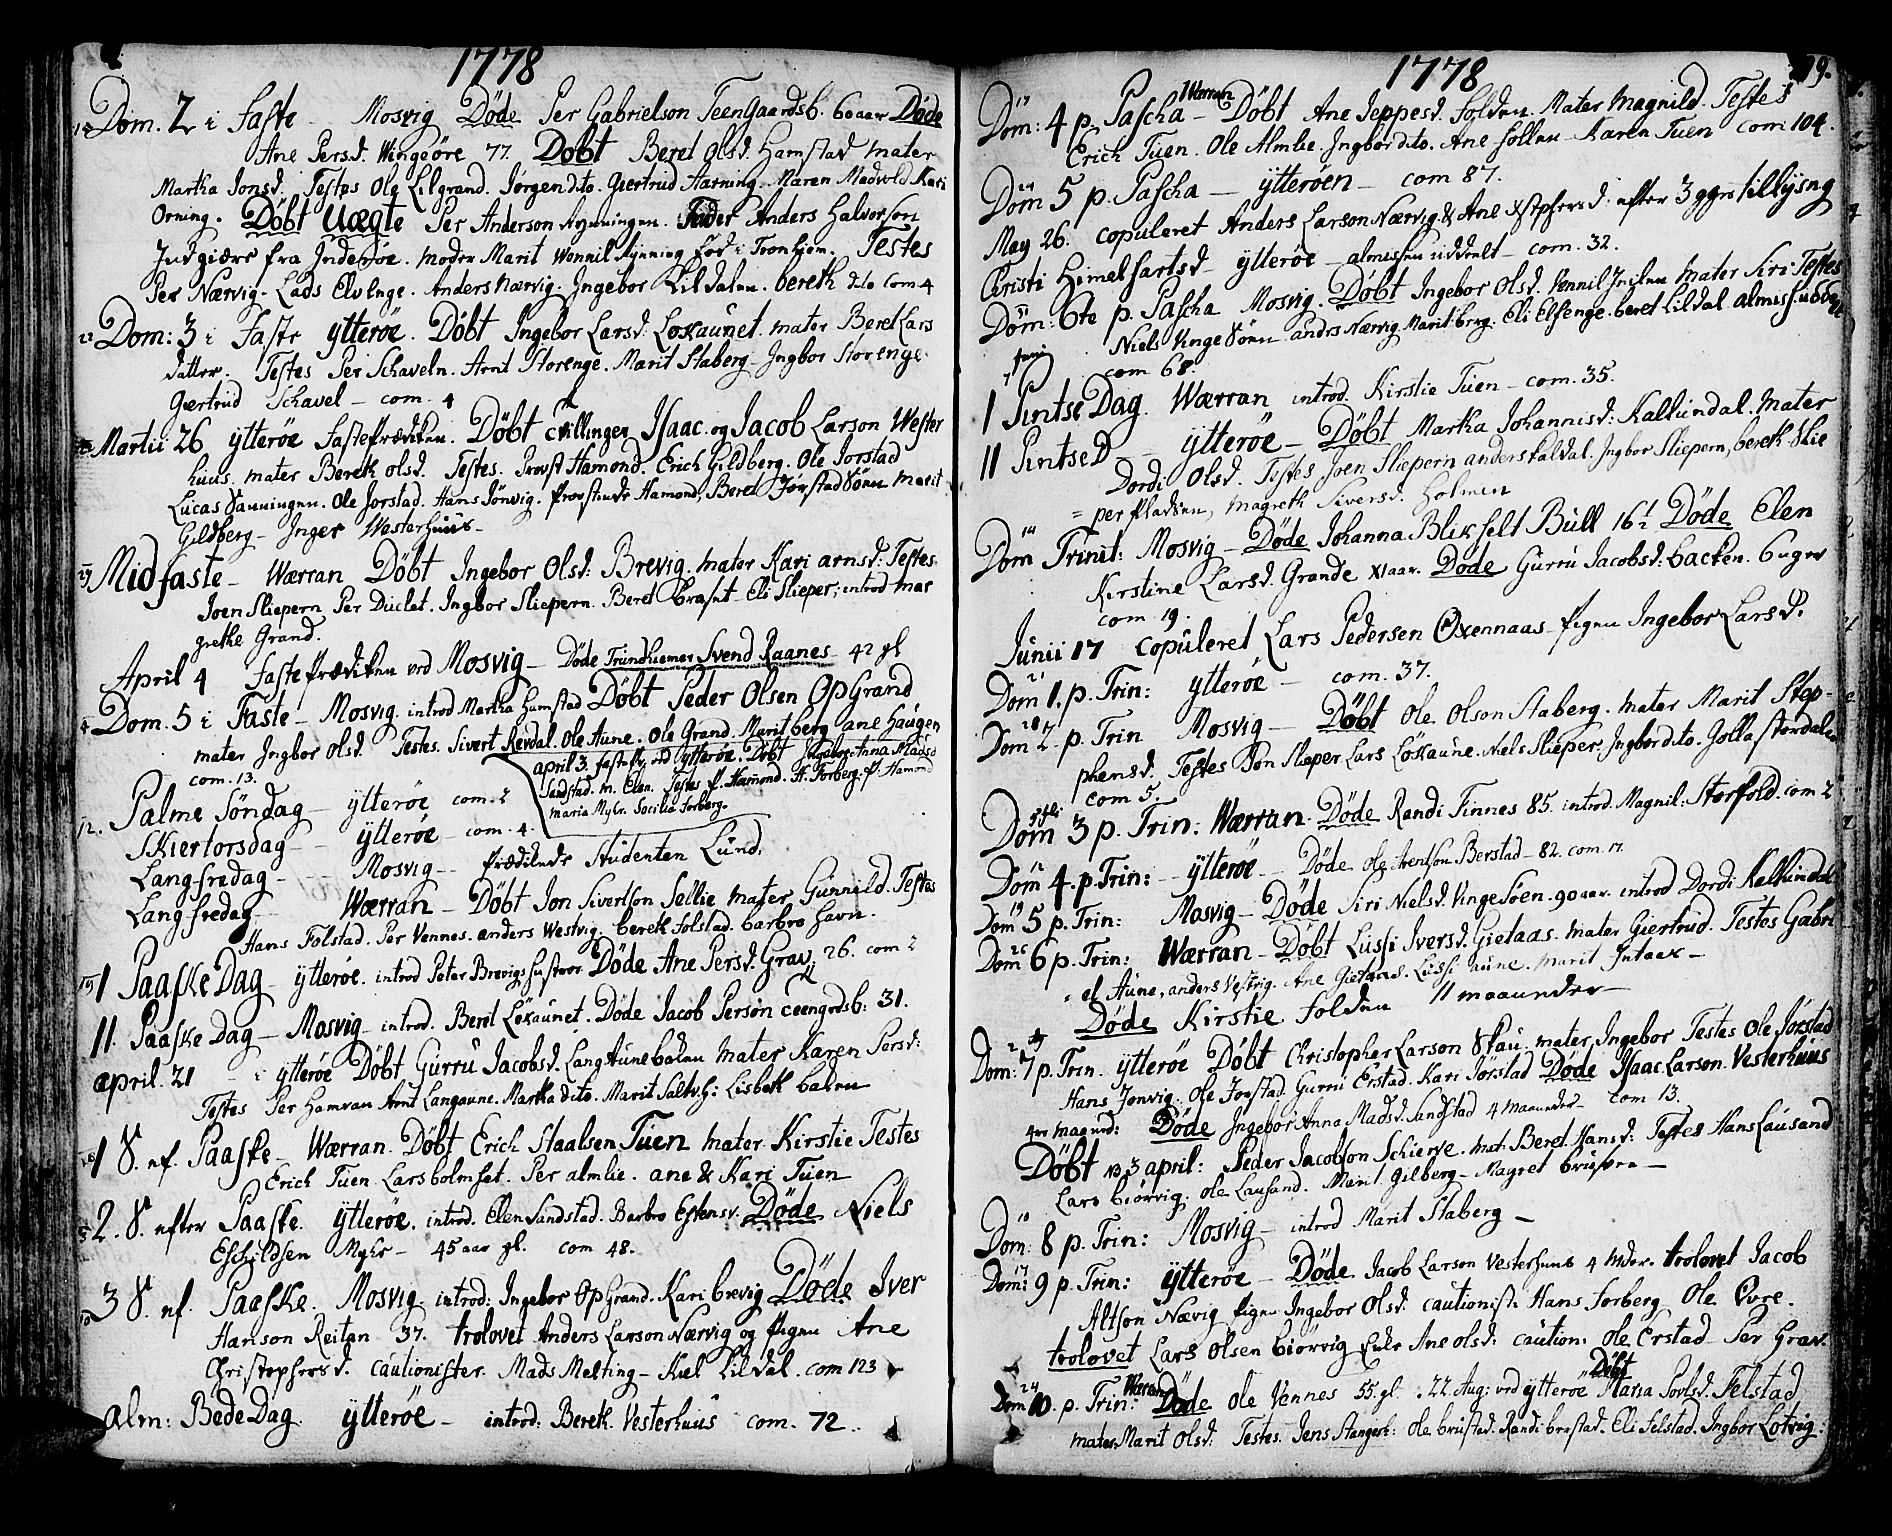 1778
Dom. 2 i Faste Mosvig Døde Per Gabrielson Teengaardsb. 60 aar Døde
Ane Persd. Wingeöre 77. Døbt Beret Olsd. Hamstad mater
Martha Jonsd. Testes Ole Lilgrand. Jørgen dito. Giertrud Harning. Maren Medvold. Kari
Orning. Døbt Uægte Per Anderson Fader Anders Halvorson
Indgiærs fra Inderøe. moder Marit Wennil fød i Tronhjem. Testes
Per Nærvig. Lads Elvenge. Anders Nærvig. Ingebor Lildalen. bereth dito com 4
22 Dom: 3 i Faste ytterøe. Døbt Ingebor Larsd. Loxaunet. mater Beret Lars
datter. Testes Per Schaveln. Arnt Storenge. Marit Staberg. Ingbor Storenge
Giertrud Schavel – com. 4
Martii 26 ytterøe fasteprædiken. Døbt tvillinger Isaac og Jacob Larson Wester
huus. mater Bereth olsd. Testes. Provst Hamond. Erich Gildberg. Ole Jorstad
Lucas Sanningen. Ole Jorstad. Hans Jönvig. Provstinde Hamond. Beret Jorstad Marit
Gildberg – Inger Westerhuus –
29 Midfaste – Wærran Døbt Ingebor Olsd: Brevig. mater Kari arnsd: Testes
Joen Sliepern Per Duclet. Ingbor Sliepern. Beret Eli Slieper; introd mar
grethe Grand.
April 4 faste Prædiken ved Mosvig – Døde Trundhiemer Svend Raanes 42 gl
Dom. 5 i Faste – Mosvig. introd Martha Hamstad Døbt Peder Olsen OpGrand
mater Ingbor olsd. Testes. Sivert Revdal. Ole Aune. Ole Grand. Marit berg ane Haugen
com. 13.
april 3. ved ytterøe. Døbt Ingebor Anna Madsd
Sandstad. m. Elen. Testes P. Hamond. H. Forberg. P. Hamond
maria Myhr. Secilia Forberg.
12. Palme Söndag – ytterøe com. 2
Skiertorsdag – ytterøe – com. 4.
Langfredag – Mosvig – Prædikede Studenten Lund.
Langfredag – Wærran – Døbt Jon Sivertson Sellie mater Gunnild. Testes
Hans Folstad. Per Vennes. anders Westvig. bereth folstad. barbro Havn.
19 1 Paaske Dag – ytterøe. introd Peter Brevigs hustroe Døde Ane Persd. Grav 26. com 2
11. Paaske Dag – Mosvig – introd. Beret Löxaunet. Døde Jacob Persön 31.
april. 21 i ytterøe Døbt Gurru Jacobsd. Langaunebalen mater Karen Persd:
Testes Per Hamran Arnt Langaune. Martha dito. Marit Lisbeth balen
1 S. ef. Paaske – Wærran. Døbt Erich Staalsen Tuen mater Kirstie Testes
Erich Tuen Lars bolmset. Per almlie. ane & Kari Tuen
2. S. efter Paaske. ytterøe. introd. Elen Sandstad. Barbro Døde Niels
Eschildsen Myhr – 45 aar gl. com 48.
10 3 S. ef. Paaske. Mosvig. introd: Ingebor OpGrand. Kari brevig Døde Iver
Hanson Reitan 37. trolovet Anders Larson Nærvig og Pigen Ane
Christophersd. cautionister. Mads Melting – Kiel Lildal. com 123
alm: Bede Dag. ytterøe – introd: Bereth. Vesterhuus com. 72.
1778 19.
17 Dom: 4 p. Pascha – Wærran Døbt Ane Jeppesd. Folden. Mater Magnild. Testes
Erich Tuen. Ole Almlie. Ingbor dito. Ane follen – Karen Tuen com: 104.
24 Dom 5 p. Pascha – ytterøen – com 87.
May 26. copuleret Anders Larson Nærvig & Ane efter 3 ggr tillysng
Christi Himelfartsd – ytterøe – almissen uddeelt – com. 32.
Dom: 6te p. Pascha Mosvig. Døbt Ingebor Olsd. Mater Siri. Testes
Niels Vinge anders Nærvig Marit berg. Eli Elfenge. beret Lildal almis
com 68.
Junij 7
1 PintseDag. Wærran introd. Kirstie Tuen – com. 35.
11 PintseD – ytterøe – Døbt Martha Johannisd: Kallundal. mater
Dordi Olsd. Testes Joen Sliepern anders kaldal. Ingbor Sliepern, bereth Slie
= per pladsen, Magreth Siversd. Holmen
14 Dom Trinit: Mosvig – Døde Johanna Blixfelt Bull 16 1/2 Døde Elen
Kirstine Larsd. Grande XI aar. Døde Gurru Jacobsd: backen. 6 uger
com 19.
Junii 17 copuleret Lars Pedersen Oxennaas – Pigen Ingebor Larsd:
21 Dom 1. p. Trin: ytterøe – com. 37.
28 Dom 2. p. Trin Mosvig – Døbt Ole Olson Staberg. mater Marit Step-
phensd. Testes Jon Slieper Lars Löxaune. Niels Slieper. Ingbor dito. Golla Stordalen
com 5.
5 Juli Dom 3 p. Trin: Wærran. Døde Randi Finnes 85. introd. Magnil: Storfold. com 2
12 Dom 4. p. Trin: – ytterøe – Døde Ole Arentson Berstad – 82. com 17.
19 Dom 5 p. Trin: Mosvig – Døde Siri Nielsd. Vingesöen. 90 aar. introd Dordi Kallundal
26 Dom 6 p. Trin: Wærran – Døbt Lussi Iversd. Gietaas. mater Giertrud. Testes Gabri
= el Aune, anders Vestvig. Ane Gietaas. Lussi aune. Marit Intaas –
Døde Kirstie Folden 11 maaneder –
2 Dom: 7 p. Trin. ytterøe Døbt Christopher Larson Skau. mater Ingebor Testes Ole Jörstad
Hans Jönvig. Ole Jorstad. Gurru Erstad. Kari Jörstad Døde Isaac Larson. Vesterhuus
maaned: Døde Ingebor Anna Madsd. Sandstad 4 maaneder – com 13.
Døbt 3 april: Peder Jacobson Schierve. mat: Beret Hansd: Testes Hans Lausand
Lars biörvig. Ole Lausand. Marit Gilberg – Magret brusven –
Dom: 8 p. Trin: Mosvig – introd Marit Staberg –
Dom: 9 p. Trin: ytterøe – Døde Jacob Larson Vesterhuus 4 mder. trolovet Jacob
Altson Nævig Pigen Ingebor Olsd. cautionist: Hans Forberg Ole Evre.
trolovet Lars Olsen biörvig Enke Ane olsd: caution: Ole Erstad Per Grav
24 Dom 10. p. Trin: Wærran Døde Ole Vennes 55. gl. 22. Aug: ved ytterøe Døbt Maria Povlsd. Felstad
mater Marit Olsd: Testes. Jens Ole brustad. Randi brustad. Eli Felstad. Ingbor Lotvig: